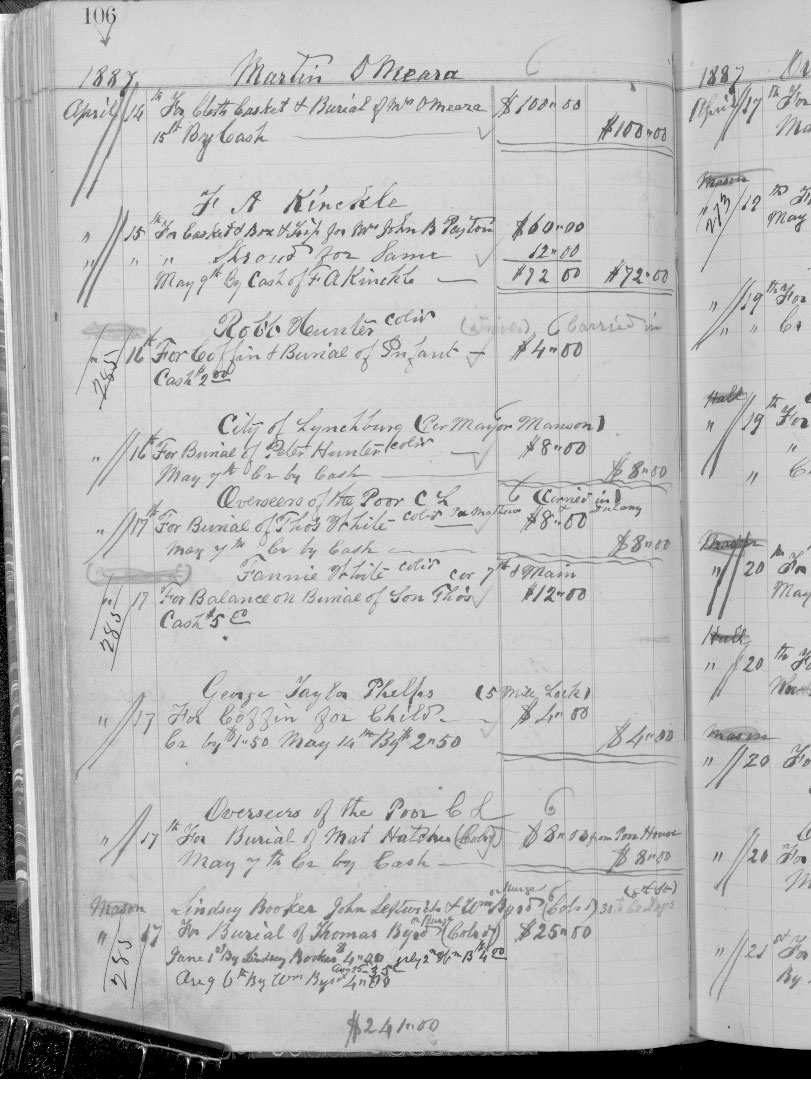 106
1887 Martin O Meara 6
April 14th For Cloth Casket & Burial of Mrs O meara $100"00
15th By Cash $100"00
F A Kinckle
" 15th For Casket & Box & Trip for Mrs John B Payton $60"00
" " " Shroud for Same 12"00
May 9th By Cash of F A Kinckle $72 00 $72"00
Robt Hunter Cold Carried in
" 16th For Coffin & Burial of Infant $4"00
285 Cash $2 00
City of Lynchburg (Per Mayor Manson)
" 16th For Burial of Peter Hunter Cold $8"00
May 7th Cr by Cash $8"00
Overseers of the Poor C L 6 (Carried in)
" 17th For Burial of Thos White Cold $8"00
May 7th Cr by Cash $8"00
Fannie White Cold cor 7th & Main
" 17 For Balance on Burial of Son Thos $12"00
285 Cash $5 00
George Taylor Phelps (5 Mile Lock)
" 17 For Coffin for Child $4"00
Cr by $1"50 May 14th By $2"50 $4"00
Overseers of the Poor C L 6
" 17th For Burial of Mat Hatcher (Colod) $8"00 from Poor House
May 7th Cr by Cash $8"00
Mason Lindsey Booker John Leftwich & Wm Byrd (Colod) 6 (5th St)
" 17 For Burial of Thomas Byrd (Colod) $25"00
285 June 1st By Lindsey Booker $4"00
Aug 6th By Wm Byrd 4"00
$241"00
1887
April 17th For
Ma
Mason
" 19th F
273 May
" 19th For
" " Cr
Hall
" 19th For
"
" C
" 20th For
May
Hall
" 20th Fo
Mason
" 20 Fo
" 20 For
M
" 21st For
By